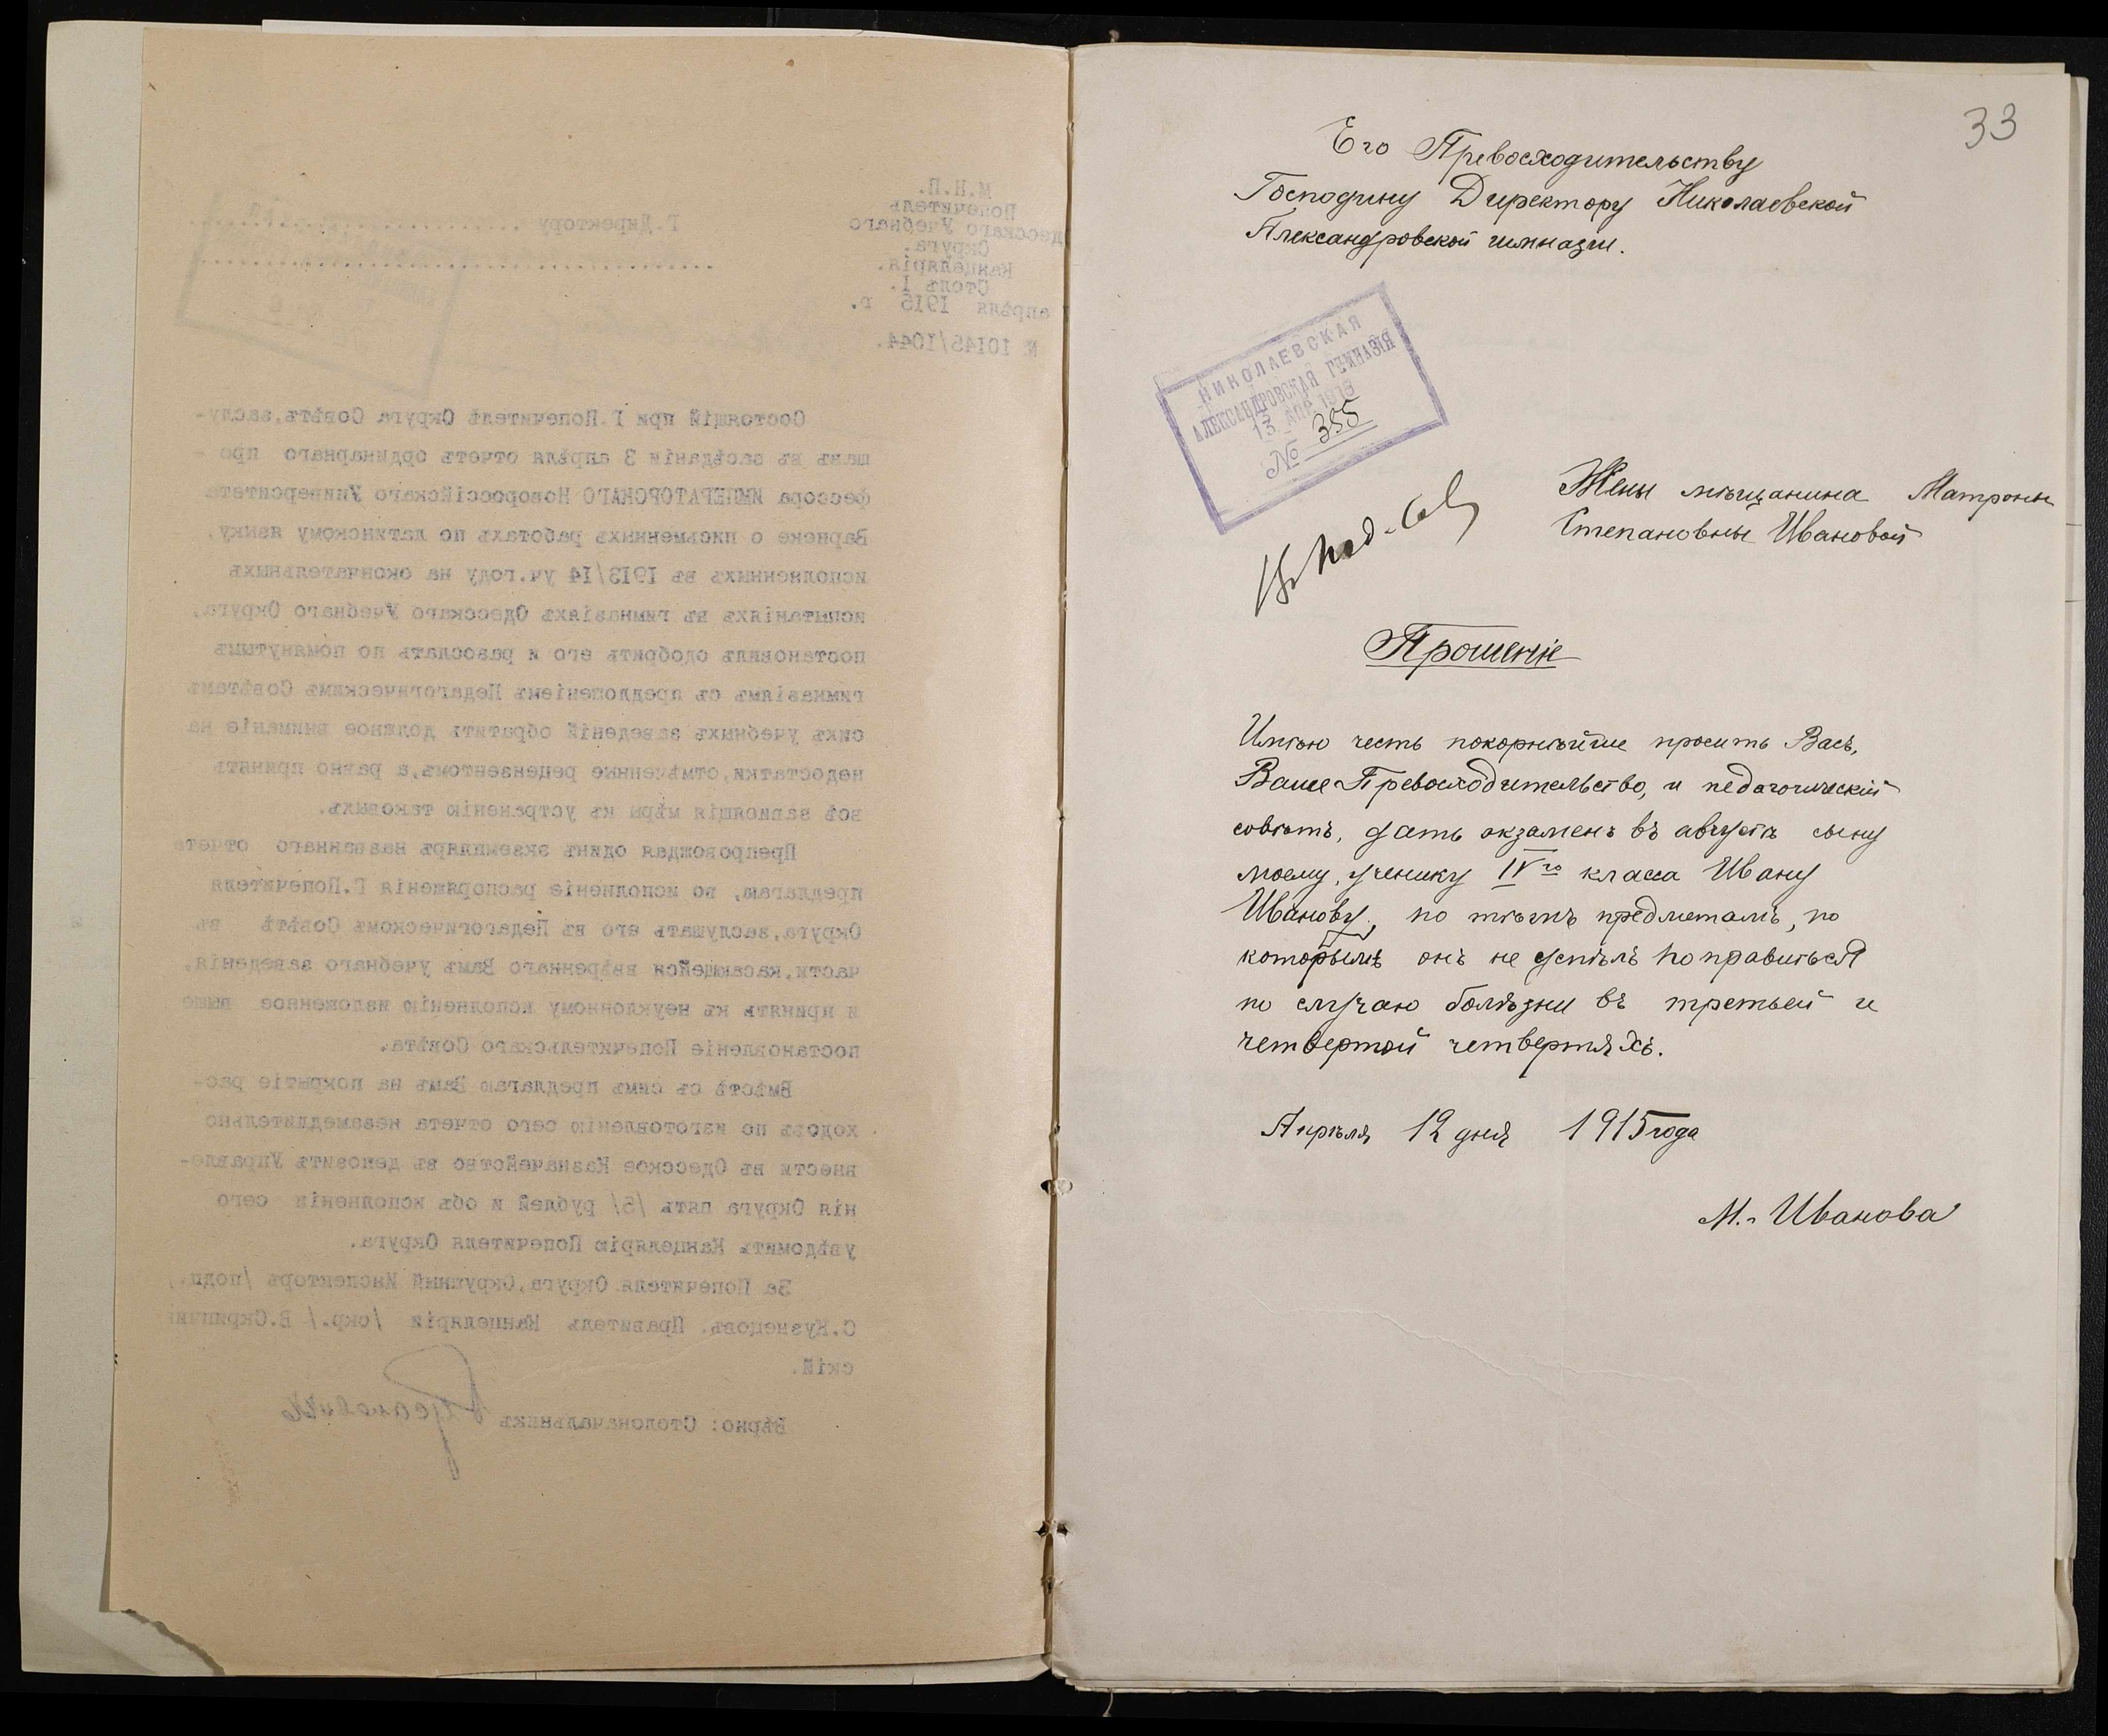 М.Н.П.
Попечитель
Одесскаго Учебнаго
Округа.
Канцелярія.
Столъ I.
апрѣля 1915 г.
№ 10145/1044.
Г.Директору
Состоящій при Г.Попечителѣ Округа Совѣтъ,заслу-
шавъ въ засѣданіи 3 апрѣля отчетъ ординарнаго про-
фессора ИМПЕРАТОРСКАГО Новороссійскаго Университета
Варнеке о письменныхъ работахъ по латинскому языку,
исполненныхъ въ 1913/14 уч.году на окончательныхъ
испытаніяхъ въ гимназіяхъ Одесскаго Учебнаго Округа,
постановилъ одобрить его и разослать по помянутымъ
гимназіямъ съ предложеніемъ Педагогическимъ Совѣтамъ
сихъ учебныхъ заведеній обратить должное вниманіе на
недостатки,отмѣченные рецензентомъ,а равно принять
всѣ зависящія мѣры къ устраненію таковыхъ.
Препровождая одинъ экземпляръ названнаго отчета
предлагаю, во исполненіе распоряженія Г.Попечителя
Округа,заслушать его въ Педагогическомъ Совѣтѣ въ
части,касающейся ввѣреннаго Вамъ учебнаго заведенія,
и принять къ неуклонному исполненію изложенное выше
постановленіе Попечительскаго Совѣта.
Вмѣстѣ съ симъ предлагаю Вамъ на покрытіе рас-
ходовъ по изготовленію сего отчета незамедлительно
внести въ Одесское Казначейство въ депозитъ Управле-
нія Округа пять /5/ рублей и объ исполненіи сего
увѣдомить Канцелярію Попечителя Округа.
За Попечителя Округа,Окружный Инспекторъ /подп./
С.Кузнецовъ. Правитель Канцеляріи /скр./ В.Скрипчин
скій.
Вѣрно: Столоначальникъ
33
Его Превосходительству
Господину Директору Николаевской
Александровской гимназіи.
НИКОЛАЕВСКАЯ
АЛЕКСАНДРОВСКАЯ ГИМНАЗІЯ
13 АПР 1915
№ 355
Жены мѣщанина Матроны
Степановны Ивановой
Прошеніе
Имѣю честь покорнѣйше просить Васъ,
Ваше Превосходительство, и педагогическій
совѣтъ, дать экзаменъ въ августѣ сыну
моему, ученику IVго класса Ивану
Иванову, по тѣмъ предметамъ, по
которымъ онъ не успѣлъ поправиться
по случаю болѣзни въ третьей и
четвертой четвертяхъ.
Апрѣля 12 дня 1915 года
М. Иванова